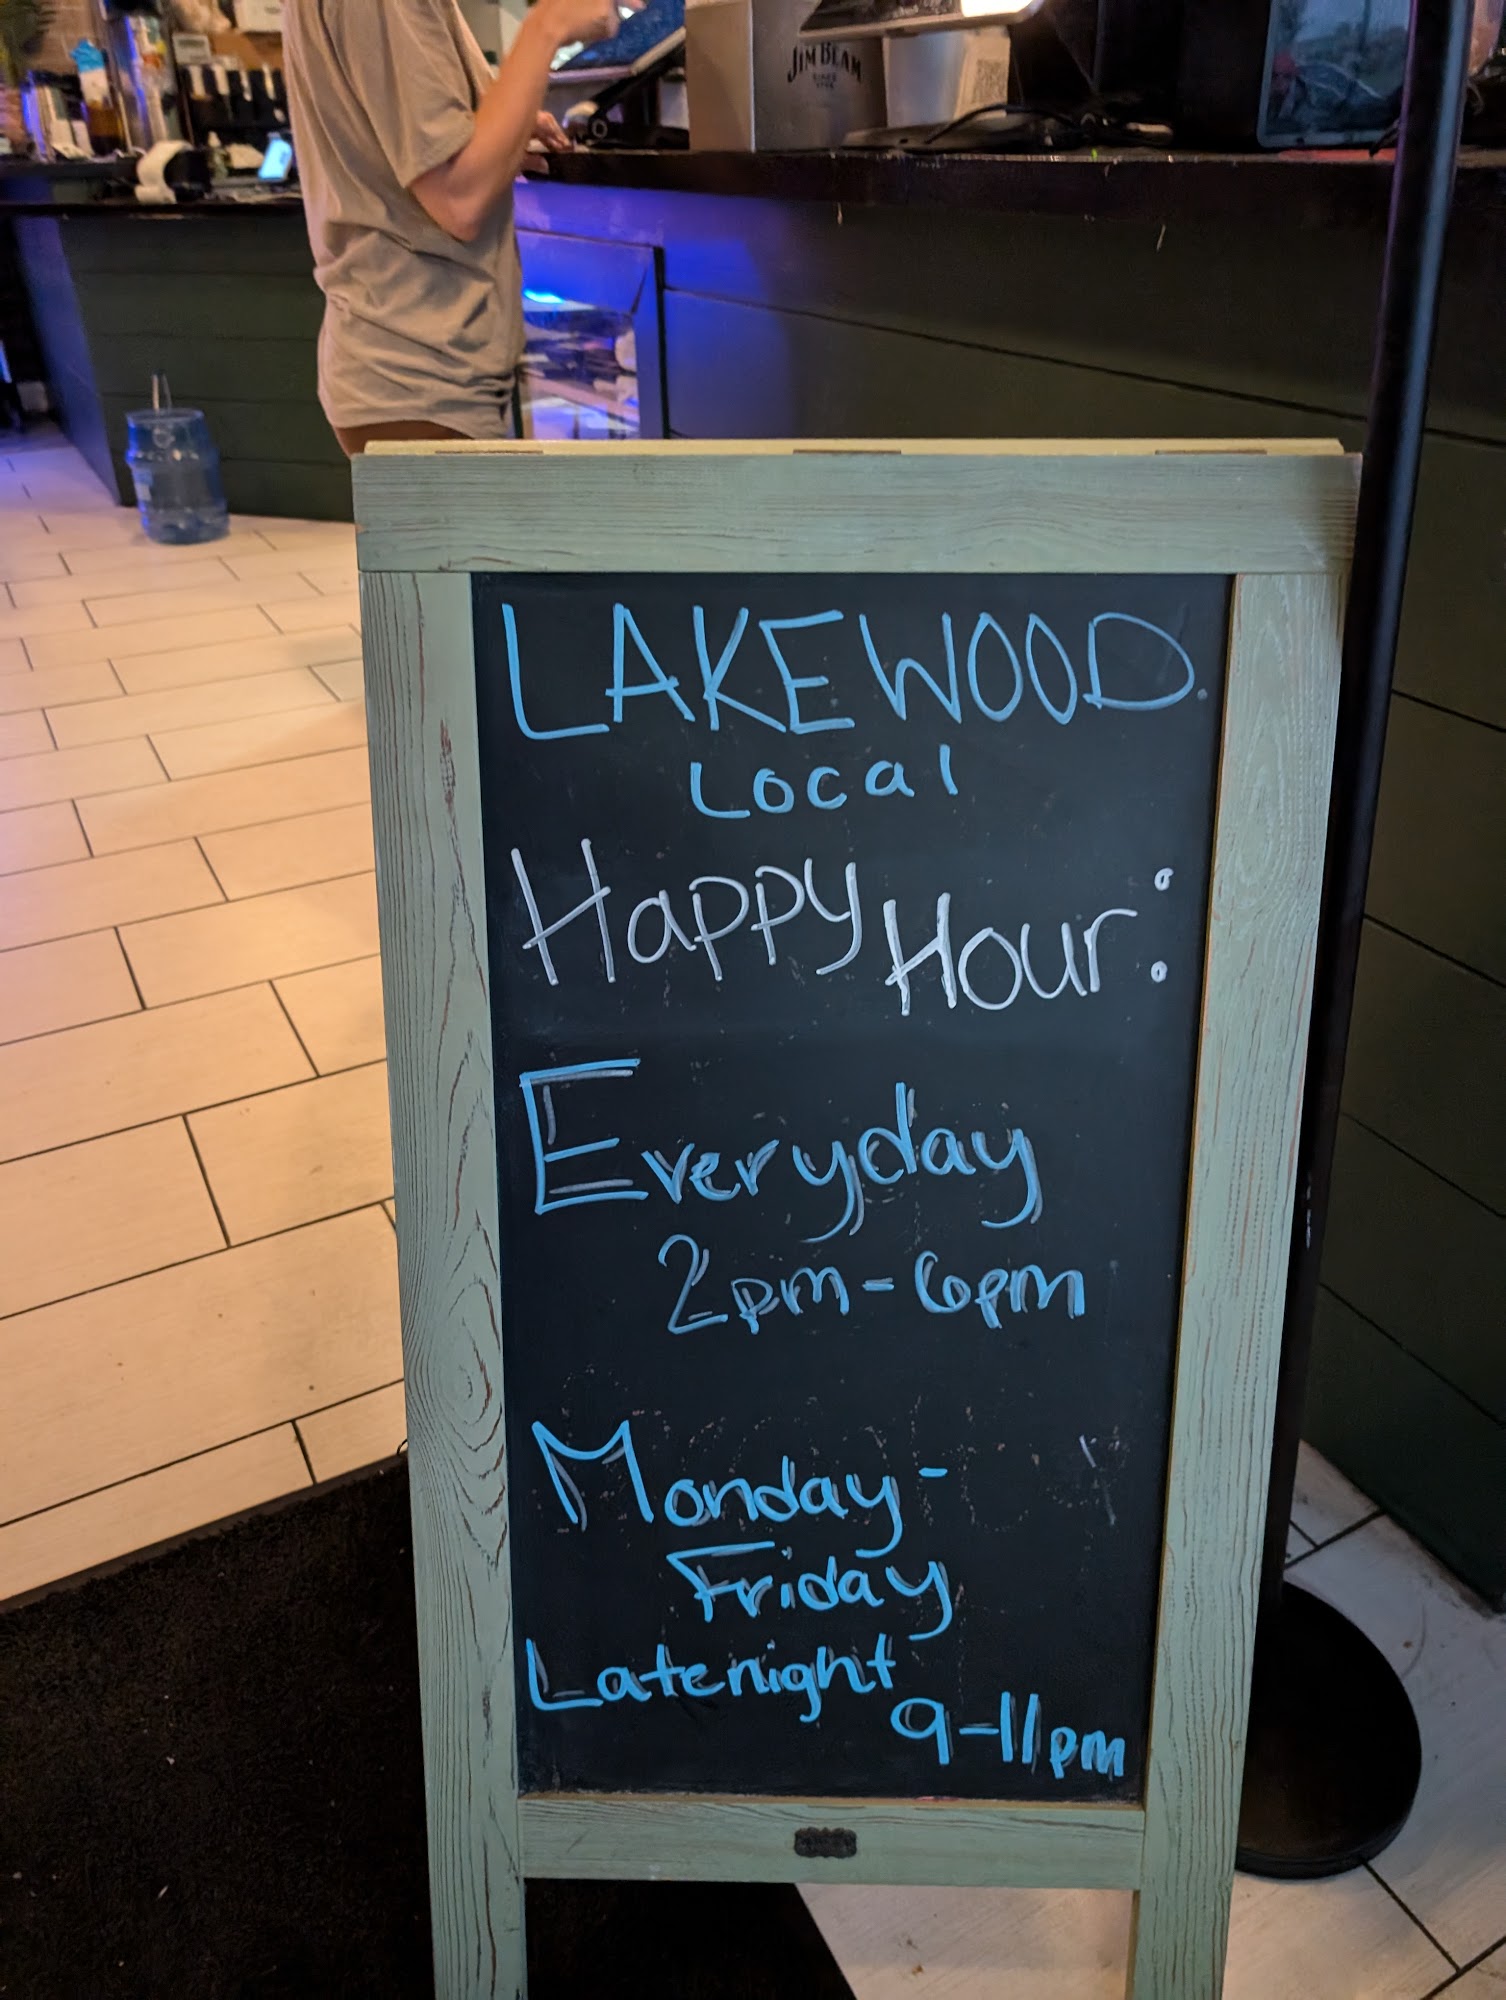 JIM BEAM
SINCE
LAKEWOOD.
Local
Happy Hour:
Everyday
2pm-6pm
Monday-
Friday
Latenight
9-11pm